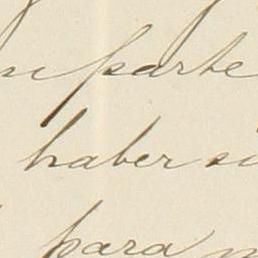 parte
haber si
para